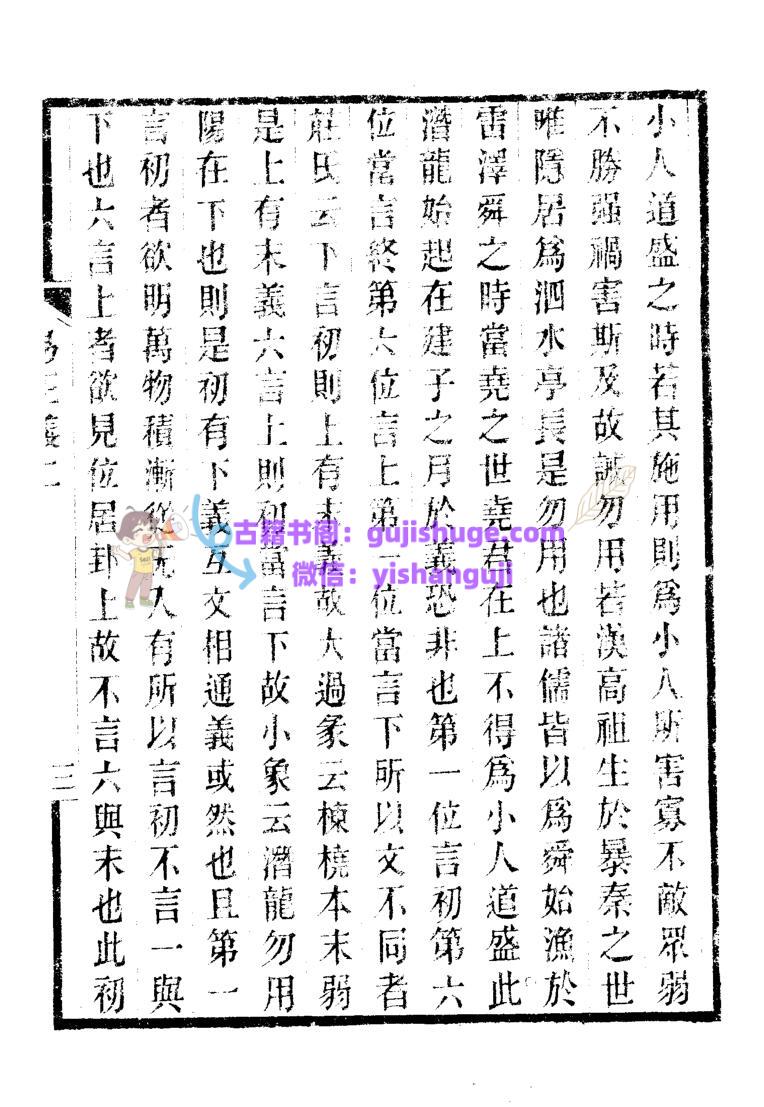 小人道盛之時若其施用則爲小人所害寡不敵眾弱
不勝强禍害斯及故誡勿用若漢高祖生於暴秦之世
唯隱居爲泗水亭長是勿用也諸儒皆以爲舜始漁於
雷澤舜之時當堯之世堯君在上不得爲小人道盛此
潛龍始起在建子之月於義恐非也第一位言初第六
位當言終第六位言上第一位當言下所以文不同者
莊氏云下言初則上有末義故大過彖云棟橈本末弱
是上有末義六言上則初當言下故小象云潛龍勿用
陽在下也則是初有下義互文相通義或然也且第一
言初者欲明萬物積漸從无入有所以言初不言一與
下也六言上者欲見位居卦上故不言六與末也此初
易正義二
三
古籍书阁：gujishuge.com
微信：yishanguji